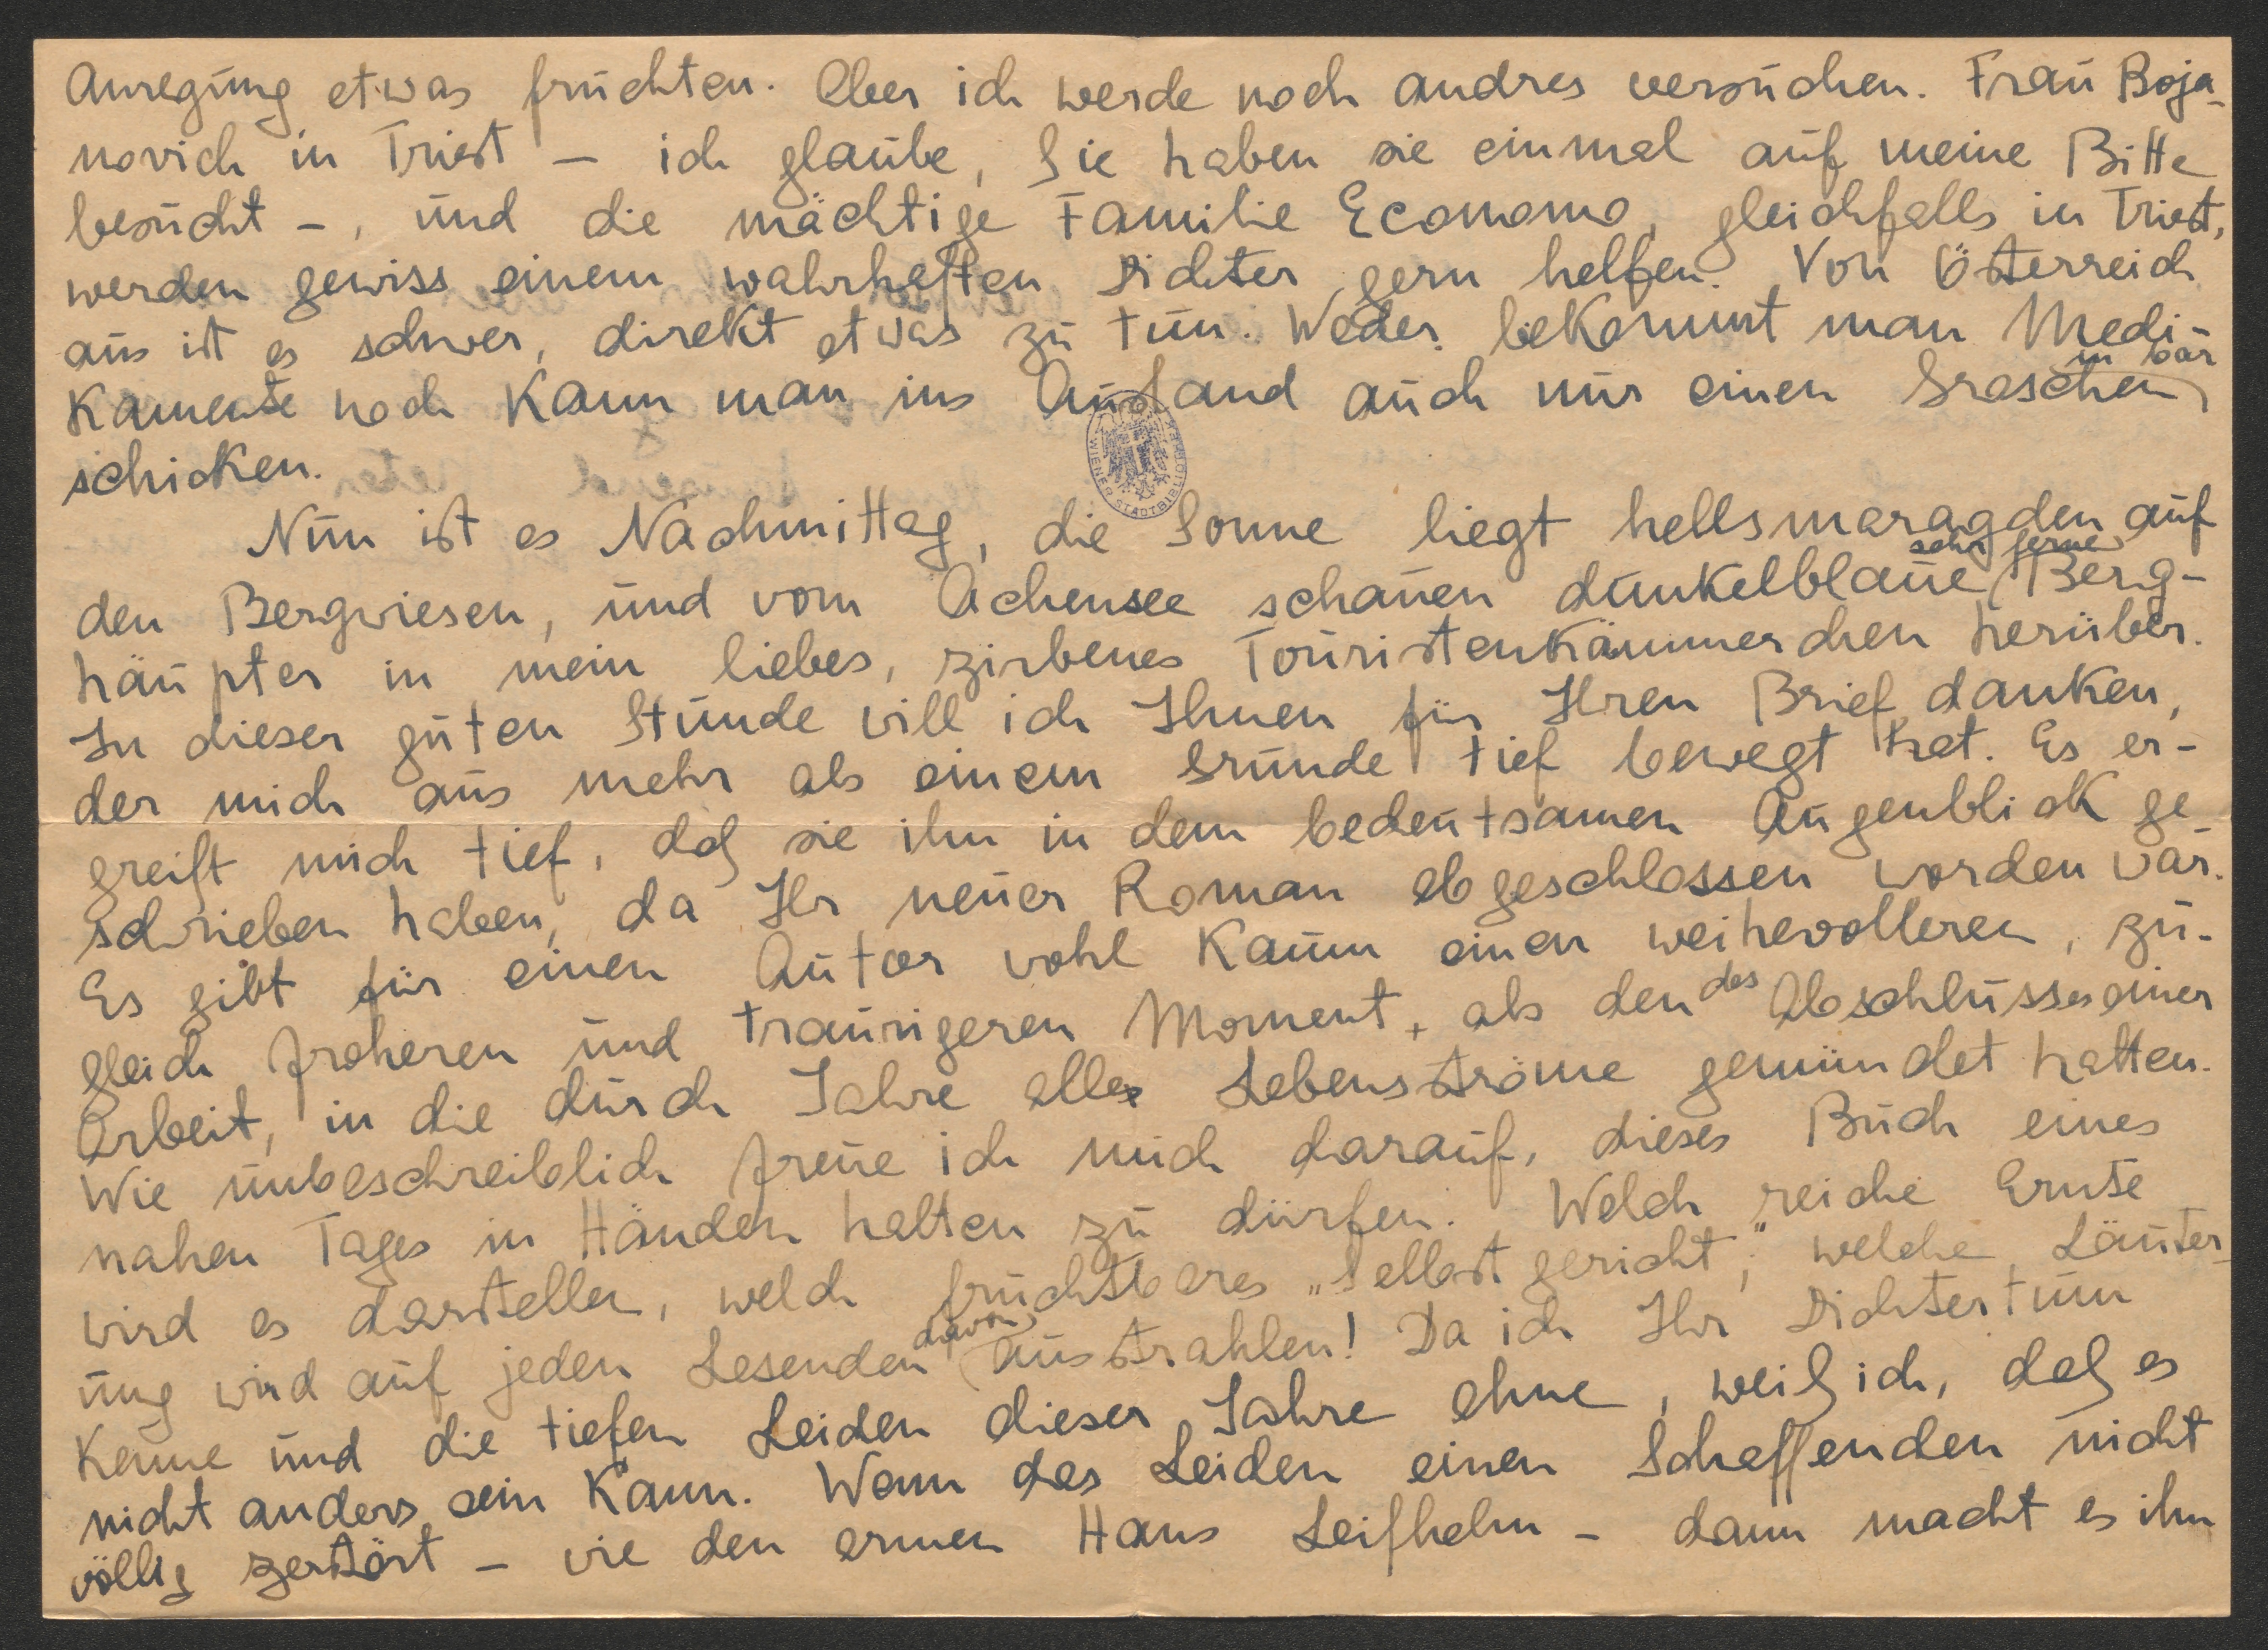 Anregung etwas fruchten. Aber ich werde noch andres versuchen. Frau Boja-
novich in Triest – ich glaube, Sie haben sie einmal auf meine Bitte
besucht –, und die mächtige Familie Economo, gleichfalls in Triest,
werden gewiss einem wahrhaften Dichter gern helfen. Von Österreich
aus ist es schwer, direkt etwas zu tun. Weder bekommt man Medi-
kamente noch kann man ins Ausland auch nur einen Groschen in bar
schicken.
WIENER STADTBIBLIOTHEK
Nun ist es Nachmittag, die Sonne liegt hellsmaragden auf
den Bergwiesen, und vom Achensee schauen dunkelblaue, sehr ferne Berg-
häupter in mein liebes, zirbenes Touristenkämmerchen herüber.
In dieser guten Stunde will ich Ihnen für Ihren Brief danken,
der mich aus mehr als einem Grunde tief bewegt hat. Es er-
greift mich tief, daß sie ihn in dem bedeutsamen Augenblick ge-
schrieben haben, da Ihr neuer Roman abgeschlossen worden war.
Es gibt für einen Autor wohl kaum einen weihevolleren, zu-
gleich froheren und traurigeren Moment, als den des Abschlusses einer
Arbeit, in die durch Jahre alle Lebensströme gemündet hatten.
Wie unbeschreiblich freue ich mich darauf, dieses Buch eines
nahen Tages in Händen halten zu dürfen. Welch reiche Ernte
wird es darstellen, welch fruchtbares „Selbstgericht", welche Läuter-
ung wird auf jeden Lesenden davon ausstrahlen! Da ich Ihr Dichtertum
kenne und die tiefen Leiden dieser Jahre ahne, weiß ich, daß es
nicht anders sein kann. Wenn das Leiden einen Schaffenden nicht
völlig zerstört – wie den armen Hans Leifhelm – dann macht es ihn